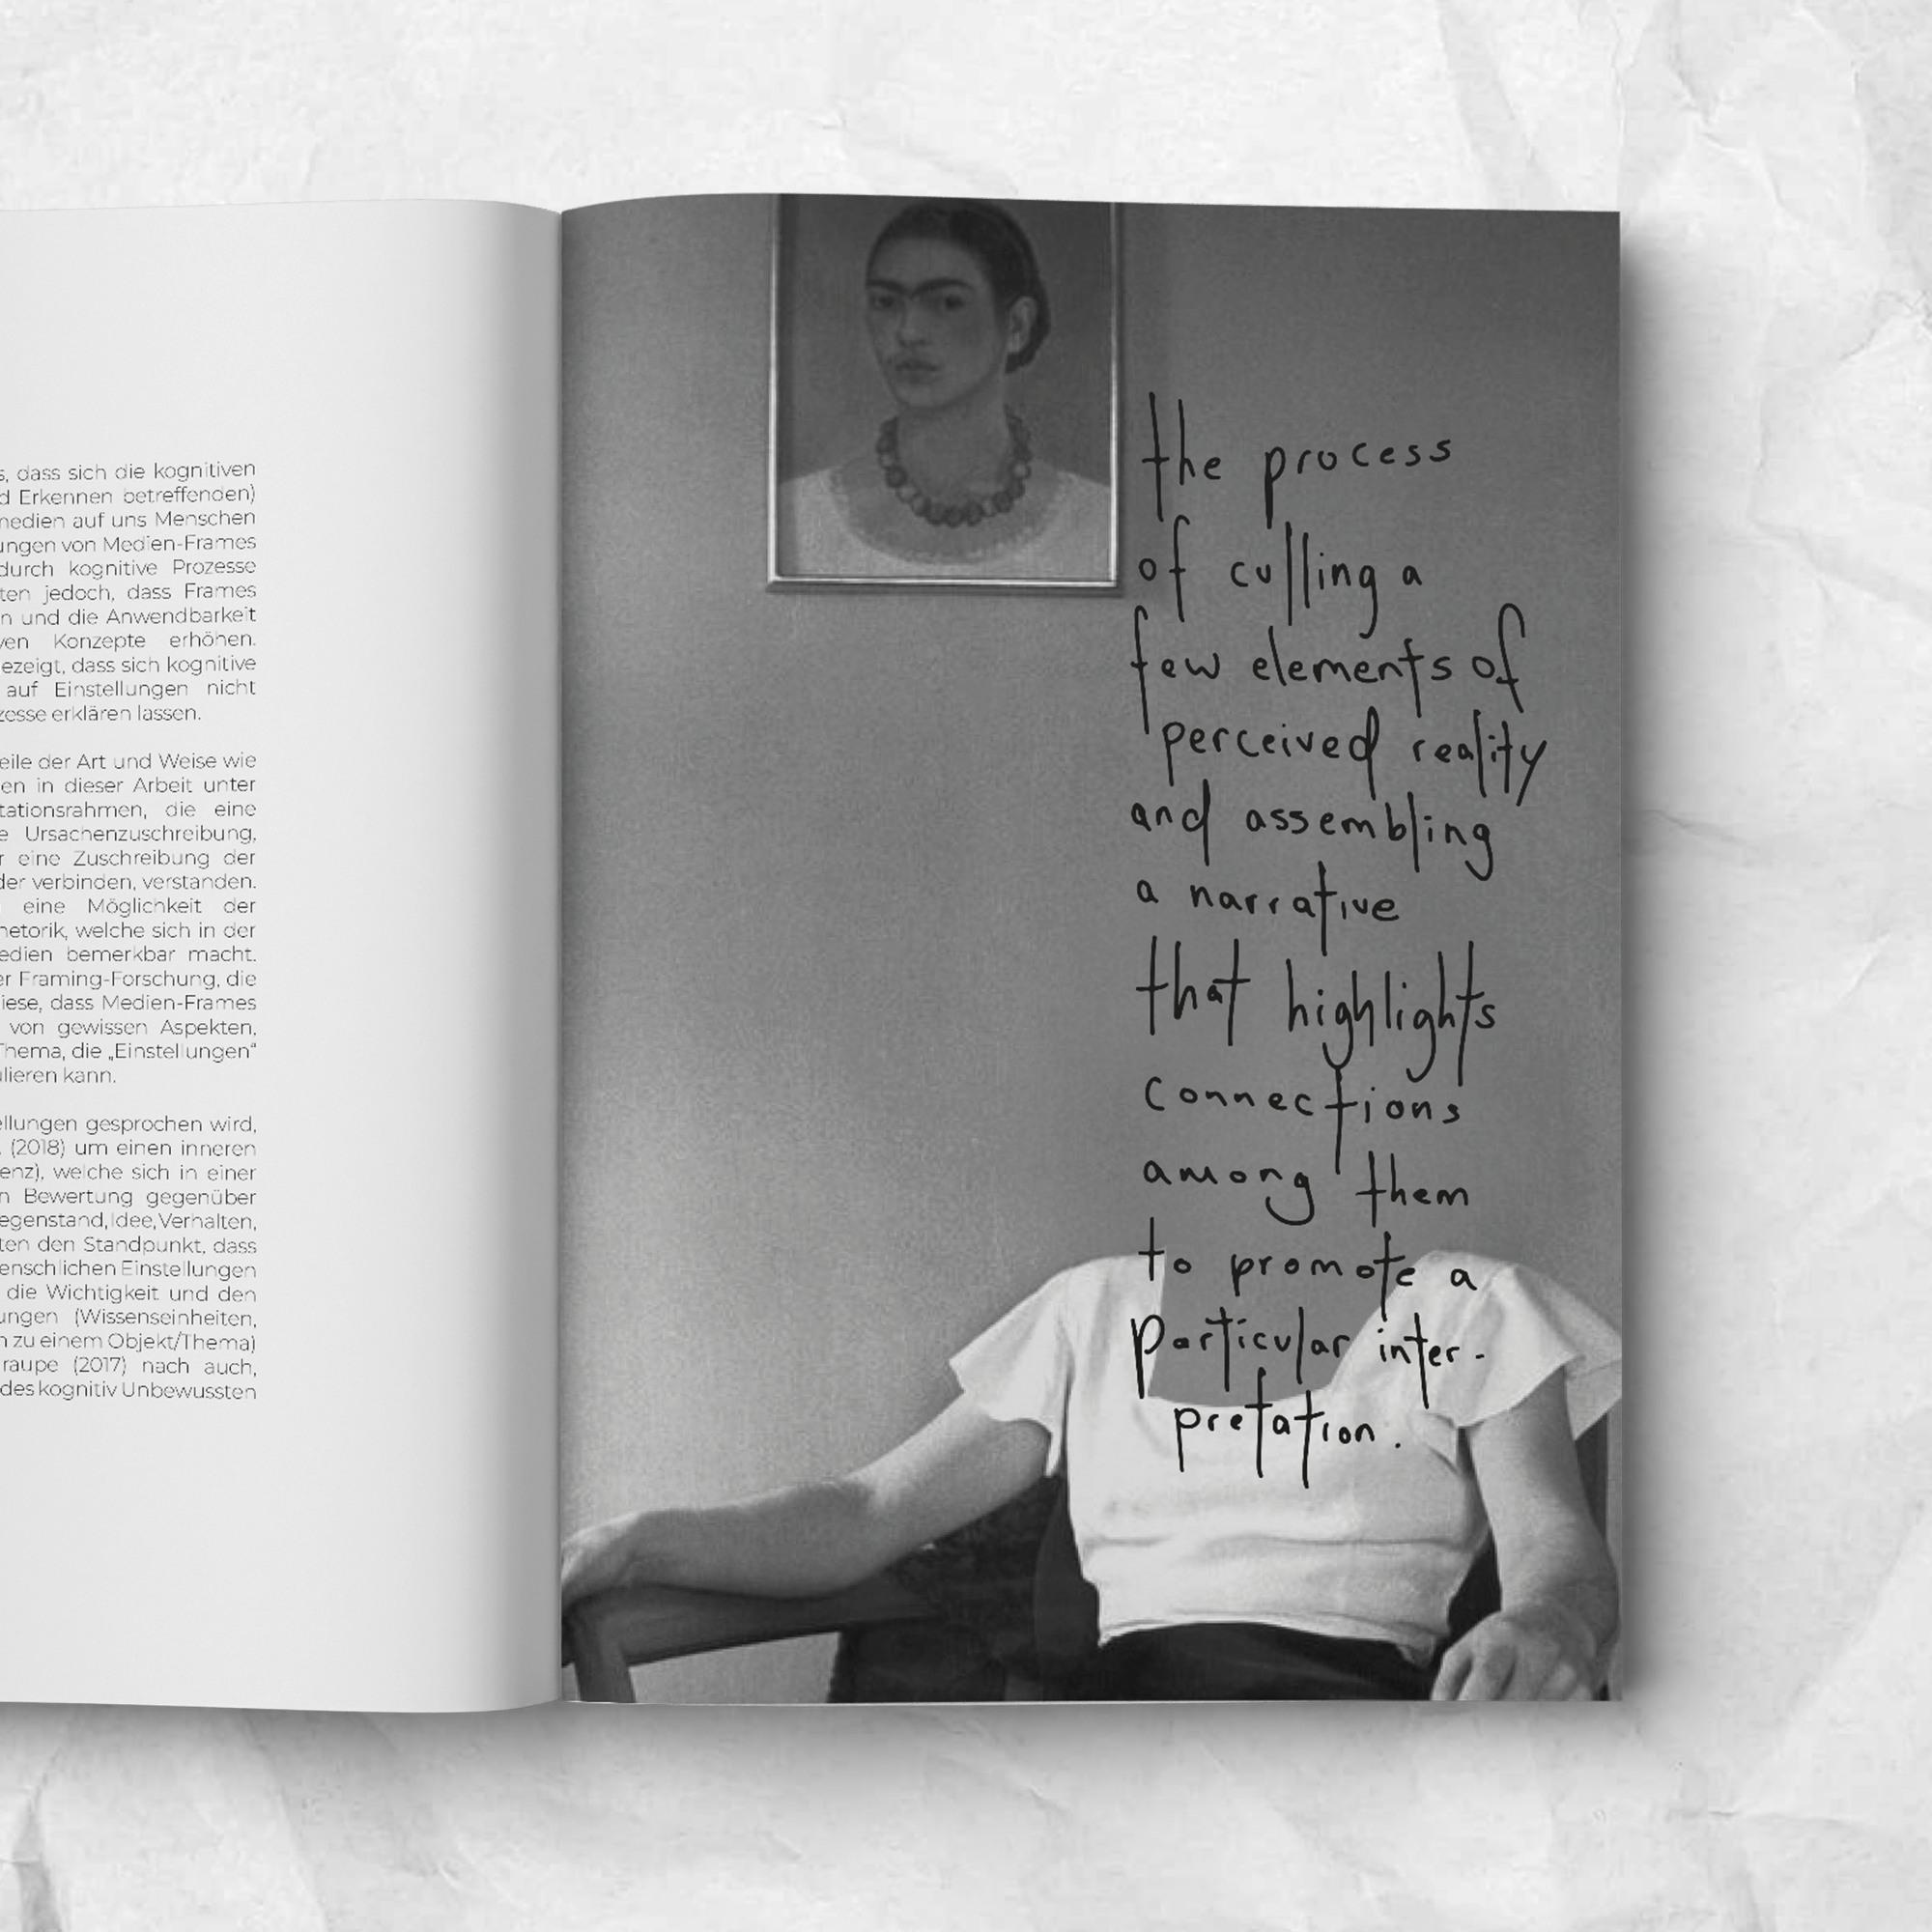 s, dass sich die kognitiven
d Erkennen betreffenden)
medien auf uns Menschen
ungen von Medien-Frames
durch kognitive Prozesse
ten jedoch, dass Frames
n und die Anwendbarkeit
ven Konzepte erhöhen.
ezeigt, dass sich kognitive
auf Einstellungen nicht
zesse erklären lassen.
eile der Art und Weise wie
en in dieser Arbeit unter
tationsrahmen, die eine
e Ursachenzuschreibung,
r eine Zuschreibung der
der verbinden, verstanden.
eine Möglichkeit der
hetorik, welche sich in der
edien bemerkbar macht.
er Framing-Forschung, die
iese, dass Medien-Frames
von gewissen Aspekten,
Thema, die „Einstellungen“
ulieren kann.
ellungen gesprochen wird,
. (2018) um einen inneren
enz), welche sich in einer
n Bewertung gegenüber
egenstand, Idee, Verhalten,
ten den Standpunkt, dass
enschlichen Einstellungen
die Wichtigkeit und den
ungen (Wissenseinheiten,
n zu einem Objekt/Thema)
raupe (2017) nach auch,
des kognitiv Unbewussten
the process
of culling a
few elements of
perceived reality
and assembling
a narrative
that highlights
connections
among them
to promote a
particular inter-
pretation.